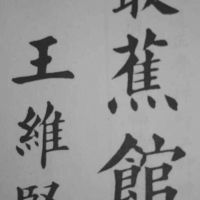 蕉館
王維賢